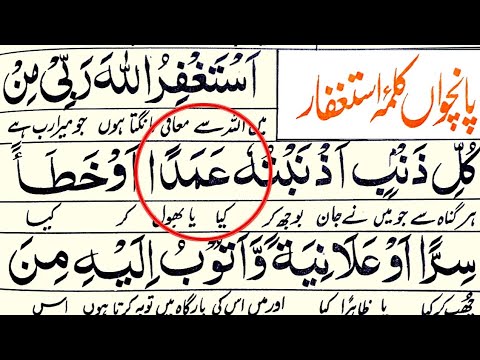 پانچواں کلمۂ استغفار
اَسْتَغْفِرُ اللّٰهَ رَبِّیْ مِنْ
میں اللہ سے معافی مانگتا ہوں جو میرا رب ہے
كُلِّ ذَنْۢبٍ اَذْنَبْتُهٗ عَمَدًا اَوْ خَطَأً
ہر گناہ سے جو میں نے جان بوجھ کر کیا یا بھول کر کیا
سِرًّا اَوْ عَلَانِيَةً وَّاَتُوْبُ اِلَيْهِ مِنَ
چھپ کر کیا یا ظاہرا کیا اور میں اس کی بارگاہ میں توبہ کرتا ہوں اس